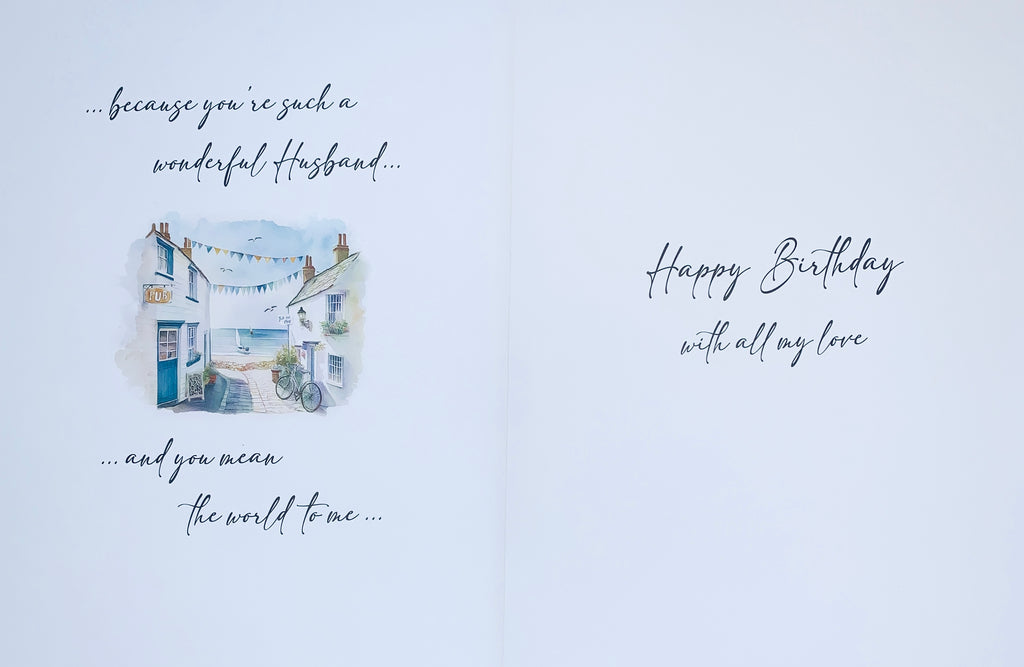 ...because you're such a
wonderful Husband...
PUB
...and you mean
the world to me...
Happy Birthday
with all my love